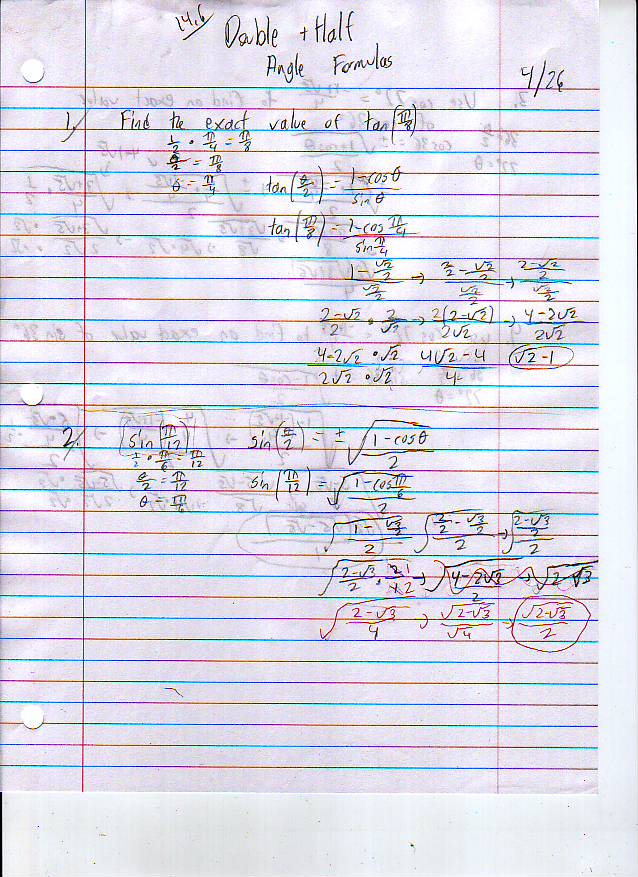 14.6
Double + Half
Angle Formulas
4/26
1. Find the exact value of tan(π/8)
1/2 · π/4 = π/8
θ/2 = π/8
θ = π/4 tan(θ/2) = 1-cosθ/sinθ
tan(π/8) = 1-cos π/4/sin π/4
1-√2/2/√2/2 → 2/2-√2/2/√2/2 → 2-√2/2/√2/2
2-√2/2 · 2/√2 → 2(2-√2)/2√2 → 4-2√2/2√2
4-2√2/2√2 · √2/√2 4√2-4/4 √2-1
2. sin(π/12) sin(θ/2) = ±√1-cosθ/2
1/2 · π/6 = π/12
θ/2 = π/12 sin(π/12) = √1-cos π/6/2
θ = π/6
√1-√3/2/2 √2/2-√3/2/2 → √2-√3/2/2
√2-√3/2 · 1/2 → √4-2√3/2 → √2-√3
√2-√3/4 → √2-√3/√4 → √2-√3/2